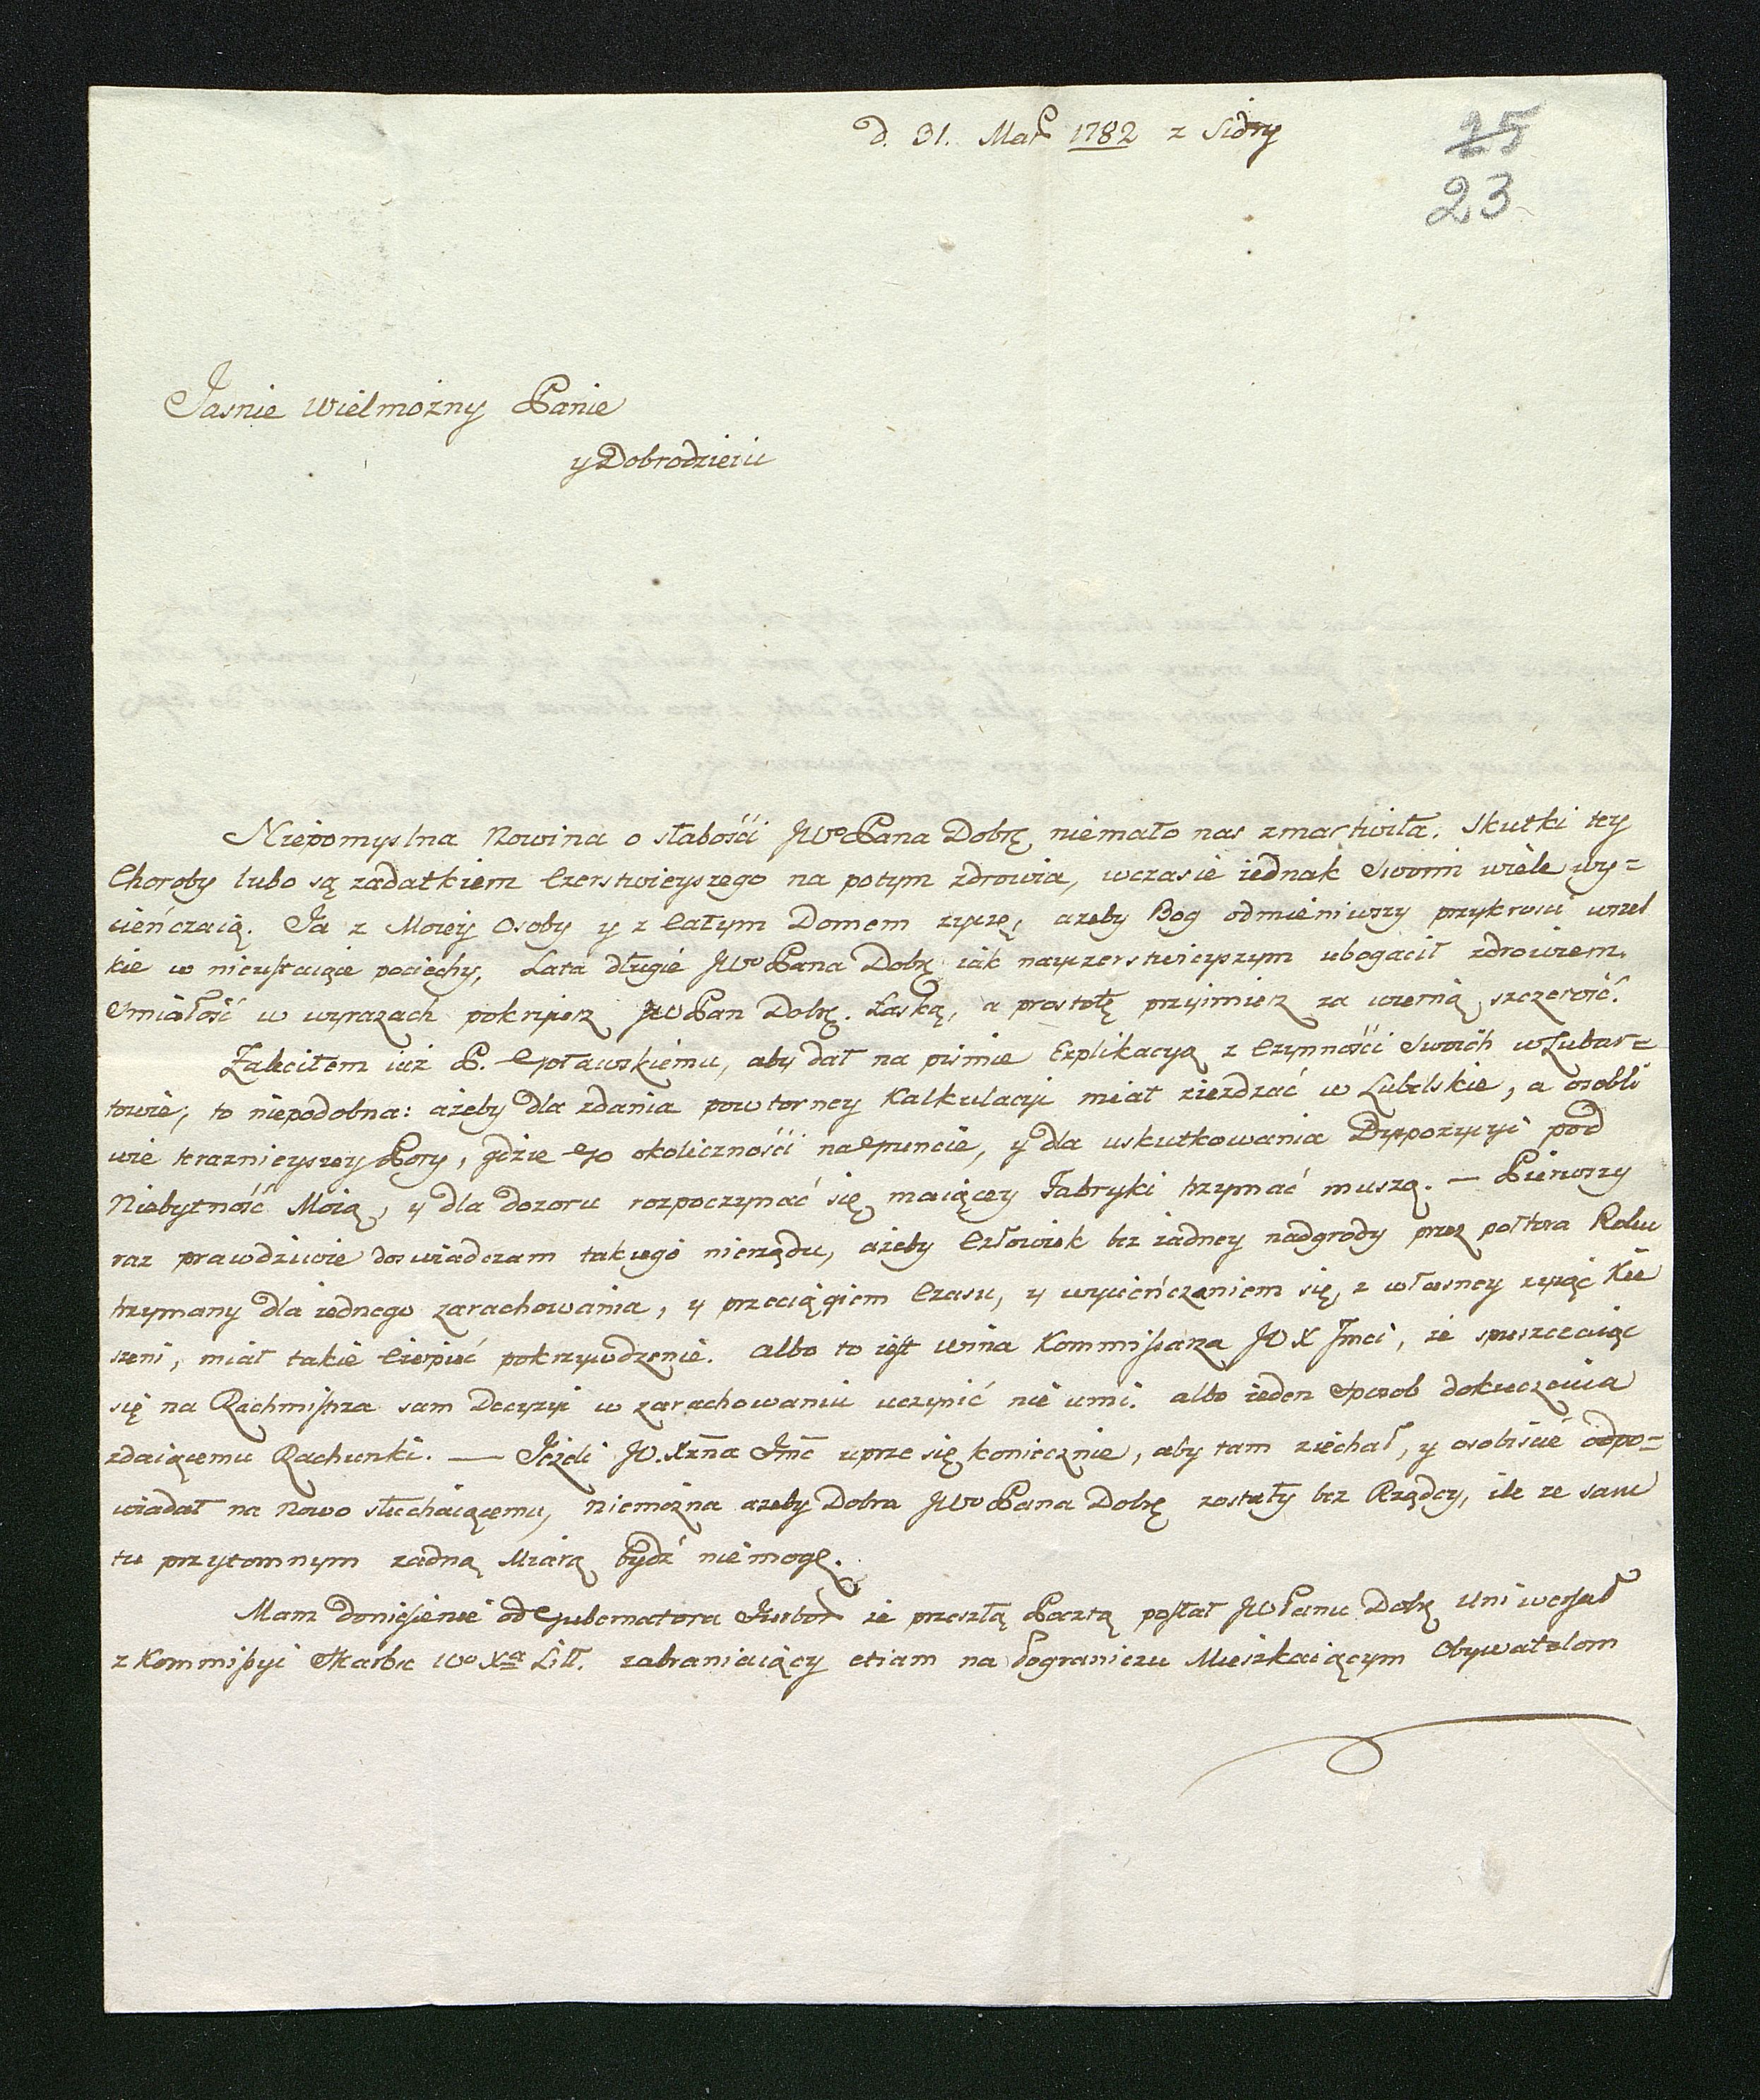 D. 31. Mar 1782 z Sidry
25
23
Jasnie Wielmożny Panie
y Dobrodzieiu
Niepomyslna Nowina o słabośći JWo Pana Dobrę niemało nas zmartwiła. Skutki tey
Choroby lubo są zadatkiem Czerstwieyszego na potym zdrowia, wczasie iednak Swoim wiele wy=
cieńczaią. Ja z Moiey Osoby y z Całym Domem zyczę, azeby Bog odmieniwszy przykrosci wszel
kie w nieustaiące pociechy, Lata długie JWo Pana Dobrę iak nayczerstwieyszym ubogacił zdrowiem.
Smiałość w wyrazach pokryiesz JWPan Dobrę. Łaską, a prostotę przyimiesz za wierną szczerość.
Zaleciłem iuż P. aby dał na pismie Explikacyą z Czynnośći Swoich w Lubar=
towie, to niepodobna: ażeby dla zdania powtorney Kalkulacyi miał ziezdzać w Lubelskie, a osobli
wie teraznieyszey Pory, gdzie Go okolicznośći na Gruncie, y dla uskutkowania Dyspozycyi pod
Niebytność Moią, y dla dozoru rozpoczynać się maiącey Fabryki trzymać muszą. — Pierwszy
raz prawdziwie doswiadczam takiego nierządu, ażeby Człowiek bez żadney nadgrody przez połtora Roku
trzymany dla iednego zarachowania, y przeciągiem Czasu, y wycieńczeniem się, z własney zyiąc Kie
szeni, miał takie Cierpieć pokrzywdzenie. Albo to iest wina Kommissarza JO X Jmci, że spuszczaiąc
się na Rachmistrza sam Decyzyi w zarachowaniu uczynić nie umi. albo ieden Sposob dokuczenia
zdaiącemu Rachunki. — Jeżeli JO. Xzna Jmć uprze się koniecznie, aby tam ziechał, y osobiscie odpo=
wiadał na Nowo słuchaiącemu, niemożna azeby Dobra JWo Pana Dobrę zostały bez Rządcy, ile ze sam
tu przytomnym zadną Miarą bydź niemogę.
Mam doniesienie od Gubernatora że przeszłą Pocztą posłał JWPanu Dobrę Uniwersał
z Kommissyi Skarbu Wo Xa Litt. zabraniaiący etiam na Pograniczu Mieszkaiącym Obywatelom